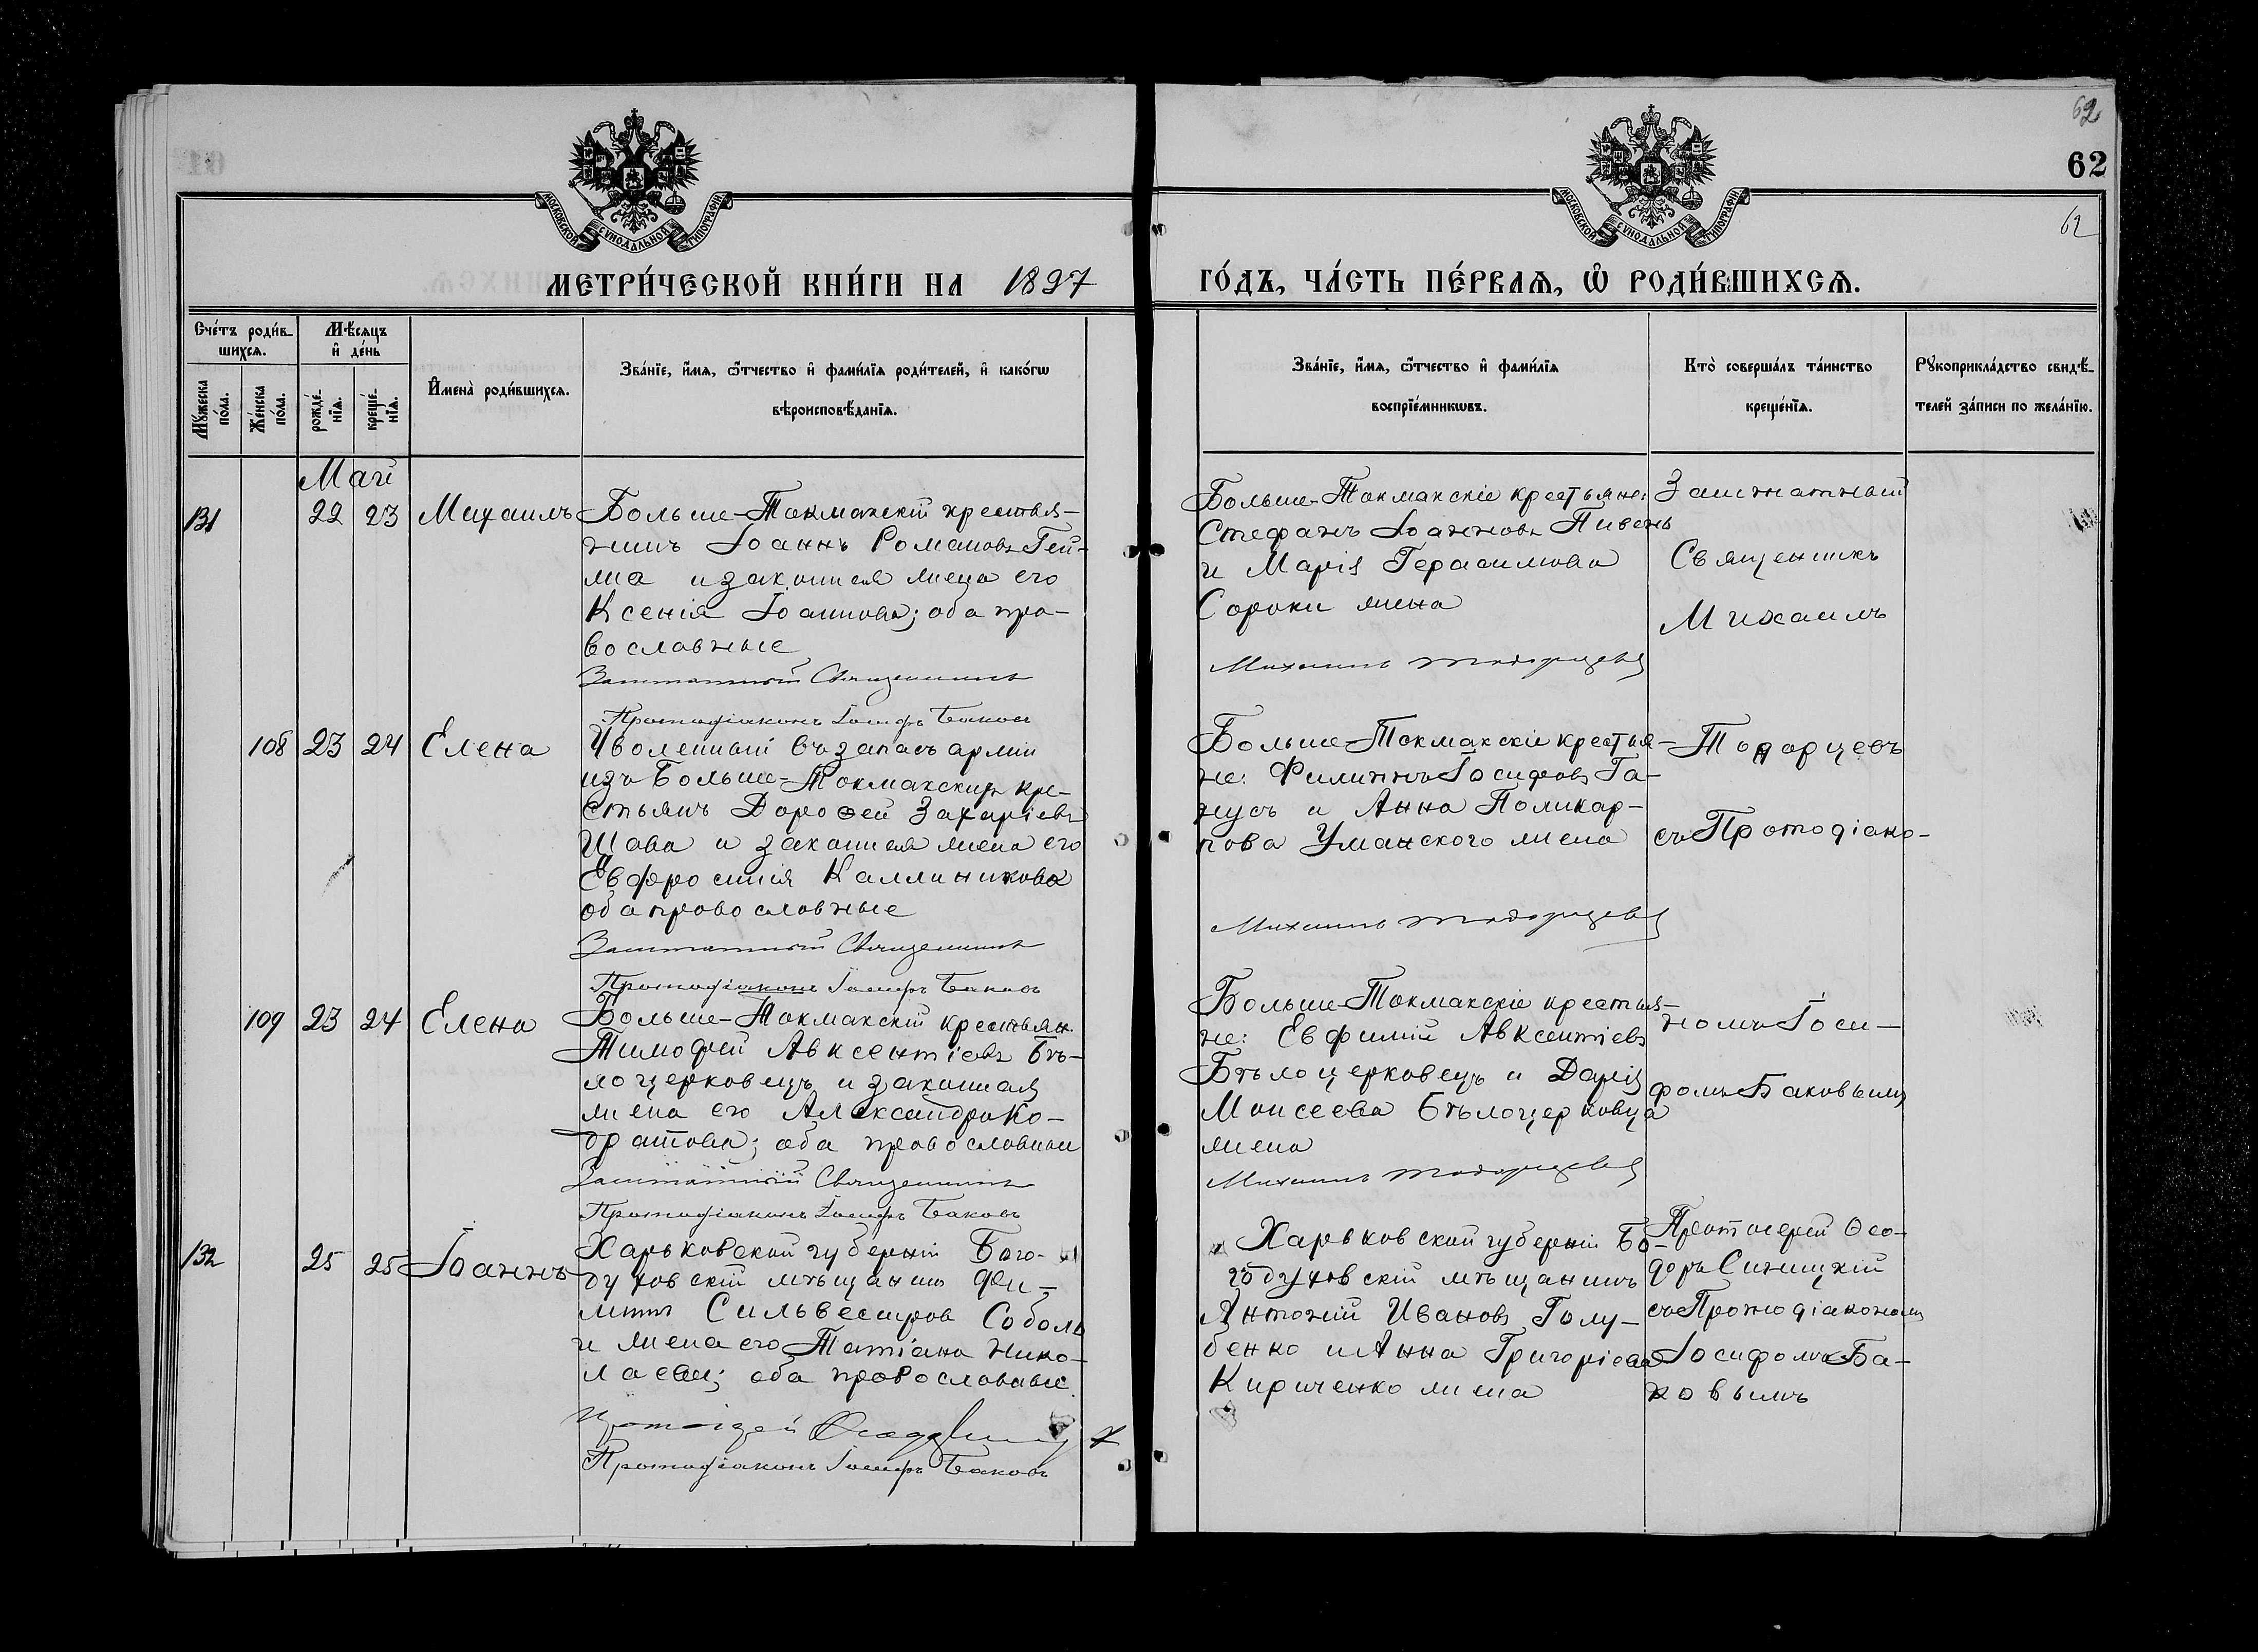 62
62
62
МОСКОВСКОЙ СѴНОДАЛЬНОЙ ТИПОГРАФІИ
МОСКОВСКОЙ СѴНОДАЛЬНОЙ ТИПОГРАФІИ
МЕТРИ́ЧЕСКОЙ КНИ́ГИ НА 1897
ГО́ДЪ, ЧА́СТЬ ПЕ́РВАѦ, Ѡ҆ РОДИ́ВШИХСѦ.
Сче́тъ роди́в-
шихсѧ.
Мѣ́сяцъ
и҆ де́нь
Мꙋ́жеска
по́ла.
Же́нска
по́ла.
рожде́-
нїѧ.
креще́-
нїѧ.
И҆мена̀ роди́вшихсѧ.
Зва́нїе, и҆́мѧ, ѻ҆́тчество и҆ фами́лїѧ роди́телей, и҆ како́гѡ
вѣроисповѣ́данїѧ.
Зва́нїе, и҆́мѧ, ѻ҆́тчество и҆ фами́лїѧ
воспрїе́мникѡвъ.
Кто̀ соверша́лъ та́инство
креще́нїѧ.
Рꙋкоприкла́дство свидѣ́-
телей за́писи по жела́нїю.
Май
131
22 23
Михаилъ
Больше-Токмакскій крестья-
нинъ Іоаннъ Романовъ Гей-
ма и законная жена его
Ксенія Іоаннова; оба пра-
вославные
Заштатный Священникъ
Протодіаконъ Іосифъ Баковъ
Больше-Токмакскіе крестьяне:
Стефанъ Іоанновъ Пивень
и Марія Герасимова
Сороки жена
Михаилъ Тодорцевъ
Заштатный
Священникъ
Михаилъ
108 23 24
Елена
Уволенный въ запасъ арміи
изъ Больше-Токмакскихъ кре-
стьянъ Дорофей Захаріевъ
Шава и законная жена его
Евфросинія Каллиникова
оба православные
Заштатный Священникъ
Протодіаконъ Іосифъ Баковъ
Больше-Токмакскіе крестья-
не: Филиппъ Іосифовъ Га-
нусъ и Анна Поликар-
пова Уманского жена
Михаилъ Тодорцевъ
Тодорцевъ
съ Протодіако-
109 23 24
Елена
Больше-Токмакскій крестьян.
Тимофей Авксентіевъ Бѣ-
лоцерковецъ и законная
жена его Александра Ко-
дратова; оба православныи
Заштатный Священникъ
Протодіаконъ Іосифъ Баковъ
Больше-Токмакскіе крестья-
не: Евфимій Авксентіевъ
Бѣлоцерковецъ и Дарія
Моисеева Бѣлоцерковца
жена
Михаилъ Тодорцевъ
номъ Іоси-
фомъ Баковымъ
132
25 25
Іоаннъ
Харьковской губерніи Бого-
духовскій мѣщанинъ Фи-
липпъ Сильвестров Соболь
и жена его Татіана Нико-
лаева; оба православные
Протоіерей
Протодіаконъ Іосифъ Баковъ
Харьковской губерніи Бо-
годуховскій мѣщанинъ
Антоній Ивановъ Голу-
бенко и Анна Григоріева
Кириченко жена
Протоіерей Ѳео-
доръ Синицкій
съ Протодіакономъ
Іосифомъ Ба-
ковымъ